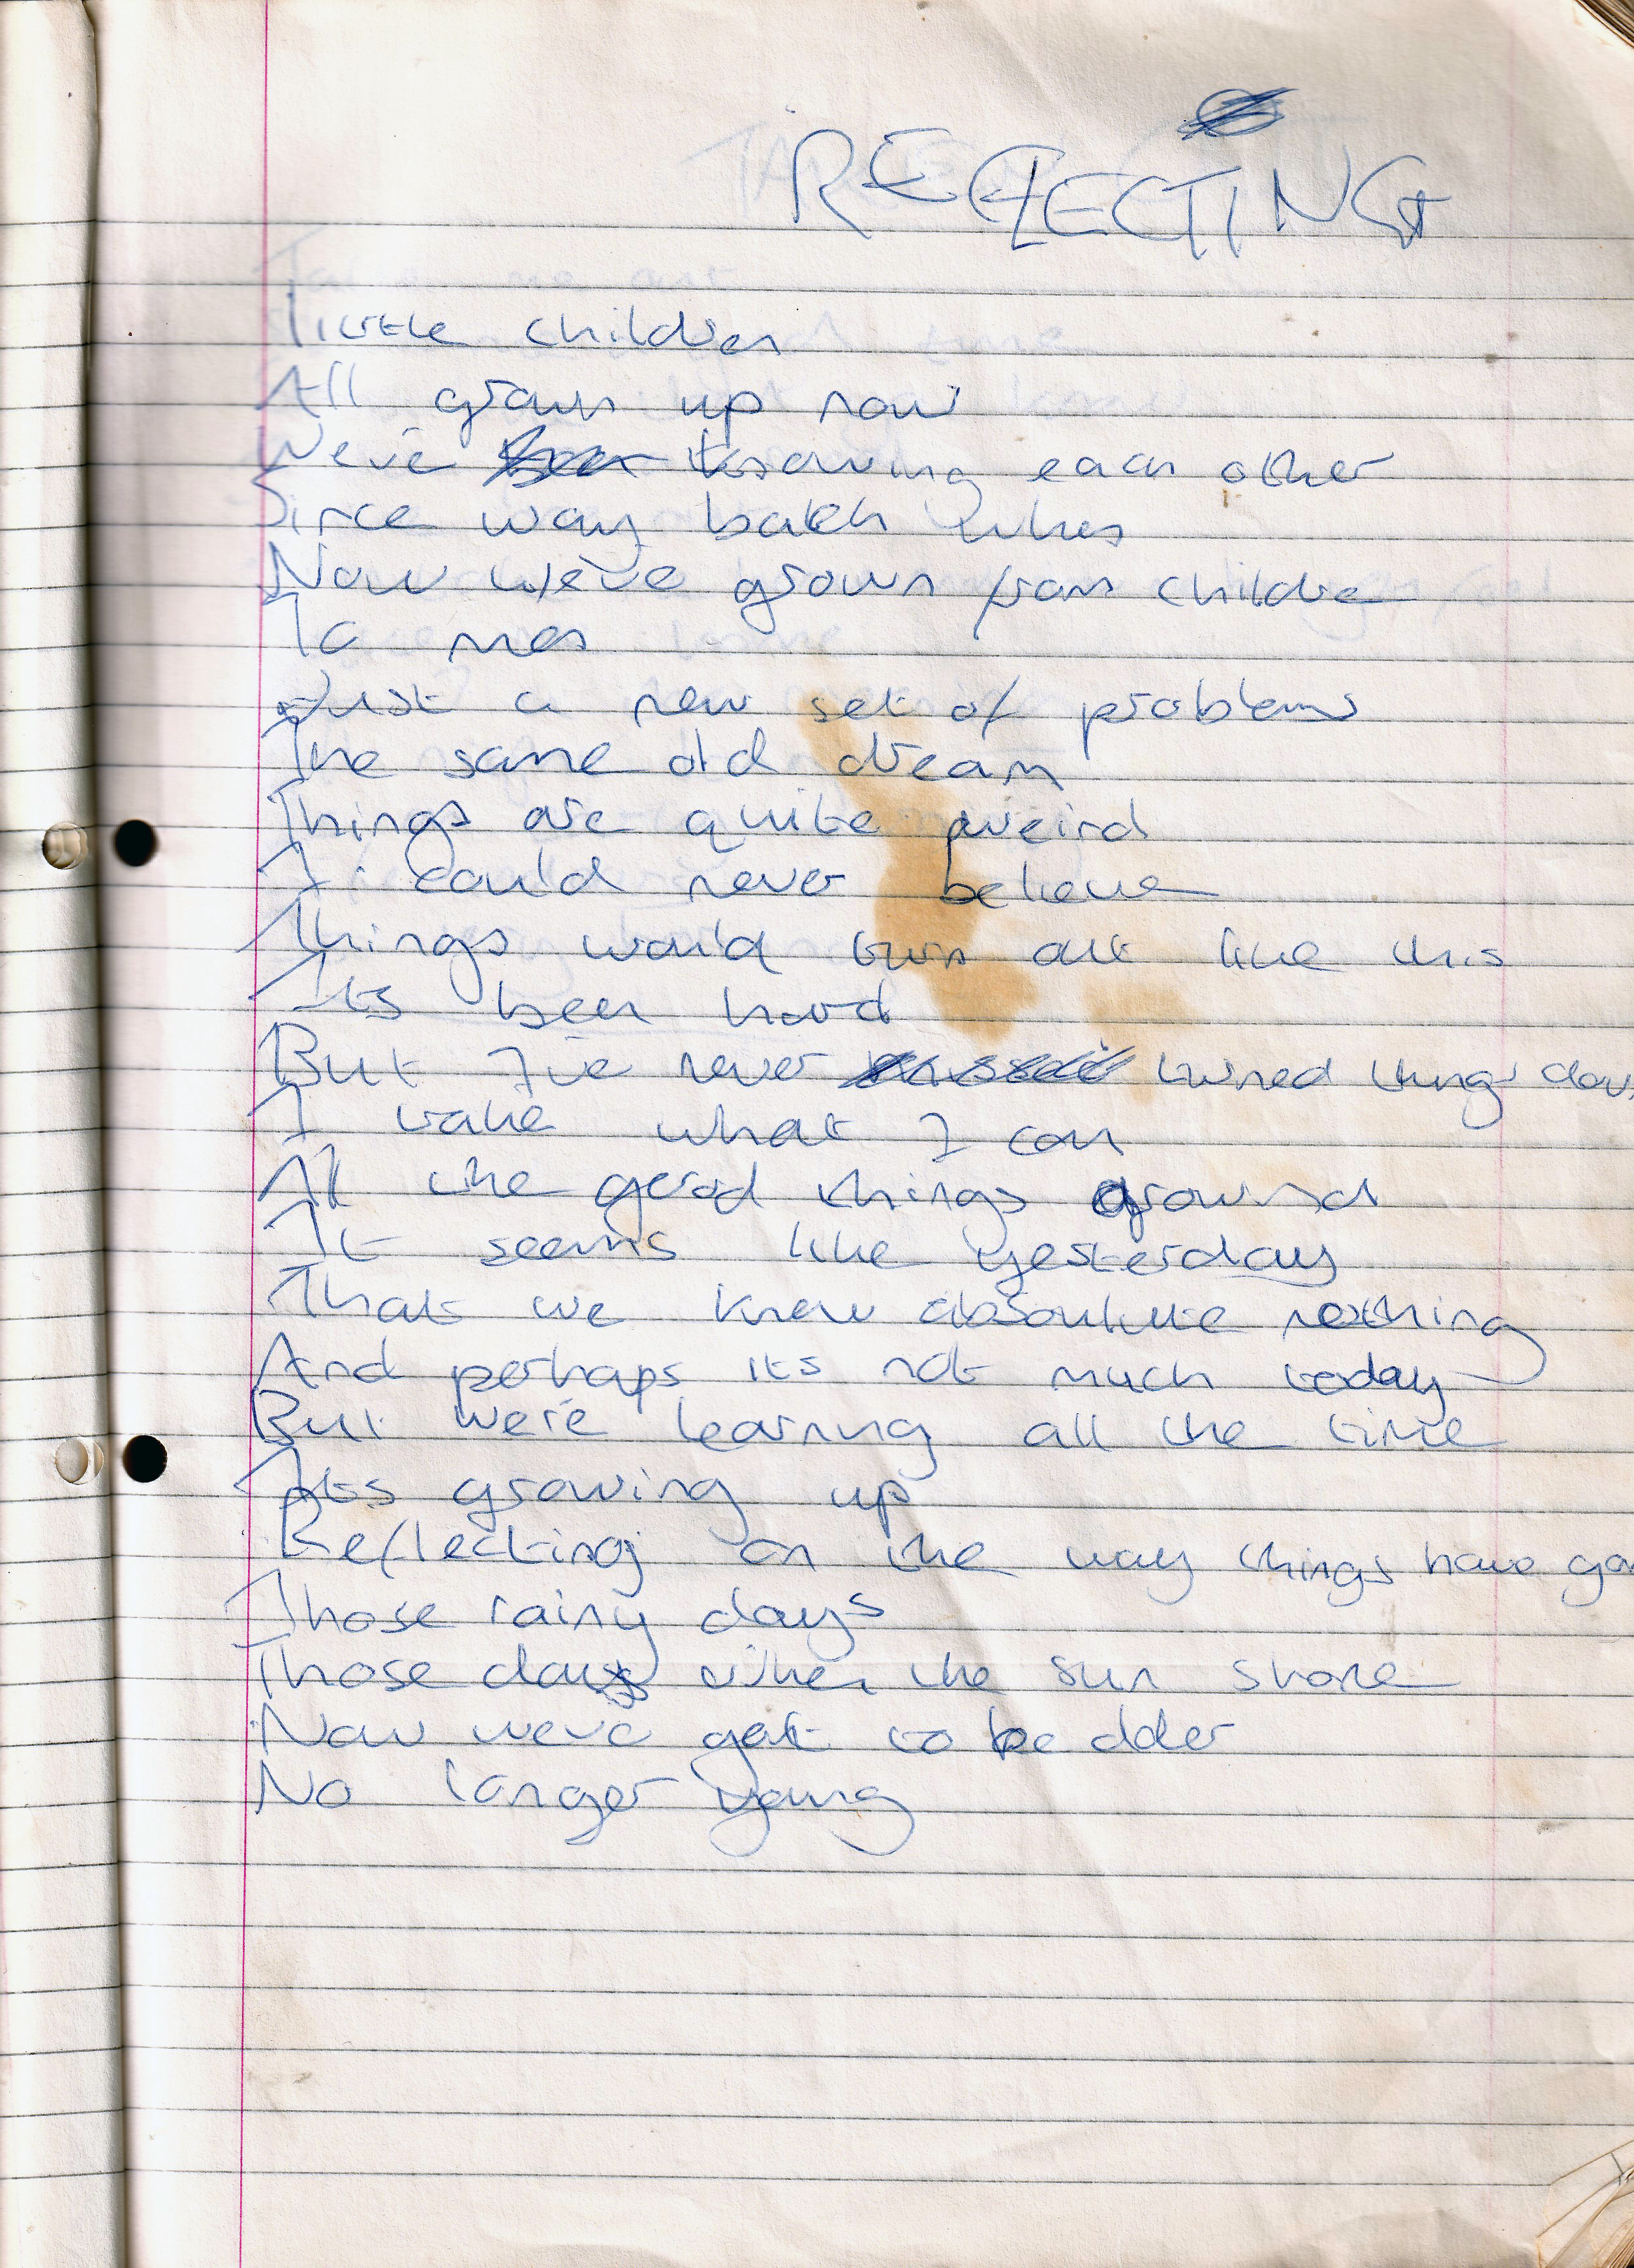 REFLECTING
Little children
All grown up now
We've knowing each other
Since way back when
Now we've grown from childre
To men
Just a new set of problems
The same old dream
Things are quite weird
I could never believe
Things would turn out like this
Its been hard
But I've never turned things dow
I take what I can
All the good things around
It seems like yesterday
That we knew absoulutle nothing
And perhaps its not much today
But we're learning all the time
Its growing up
Reflecting on the way things have gon
Those rainy days
Those days when the sun shone
Now we've got to be older
No longer young